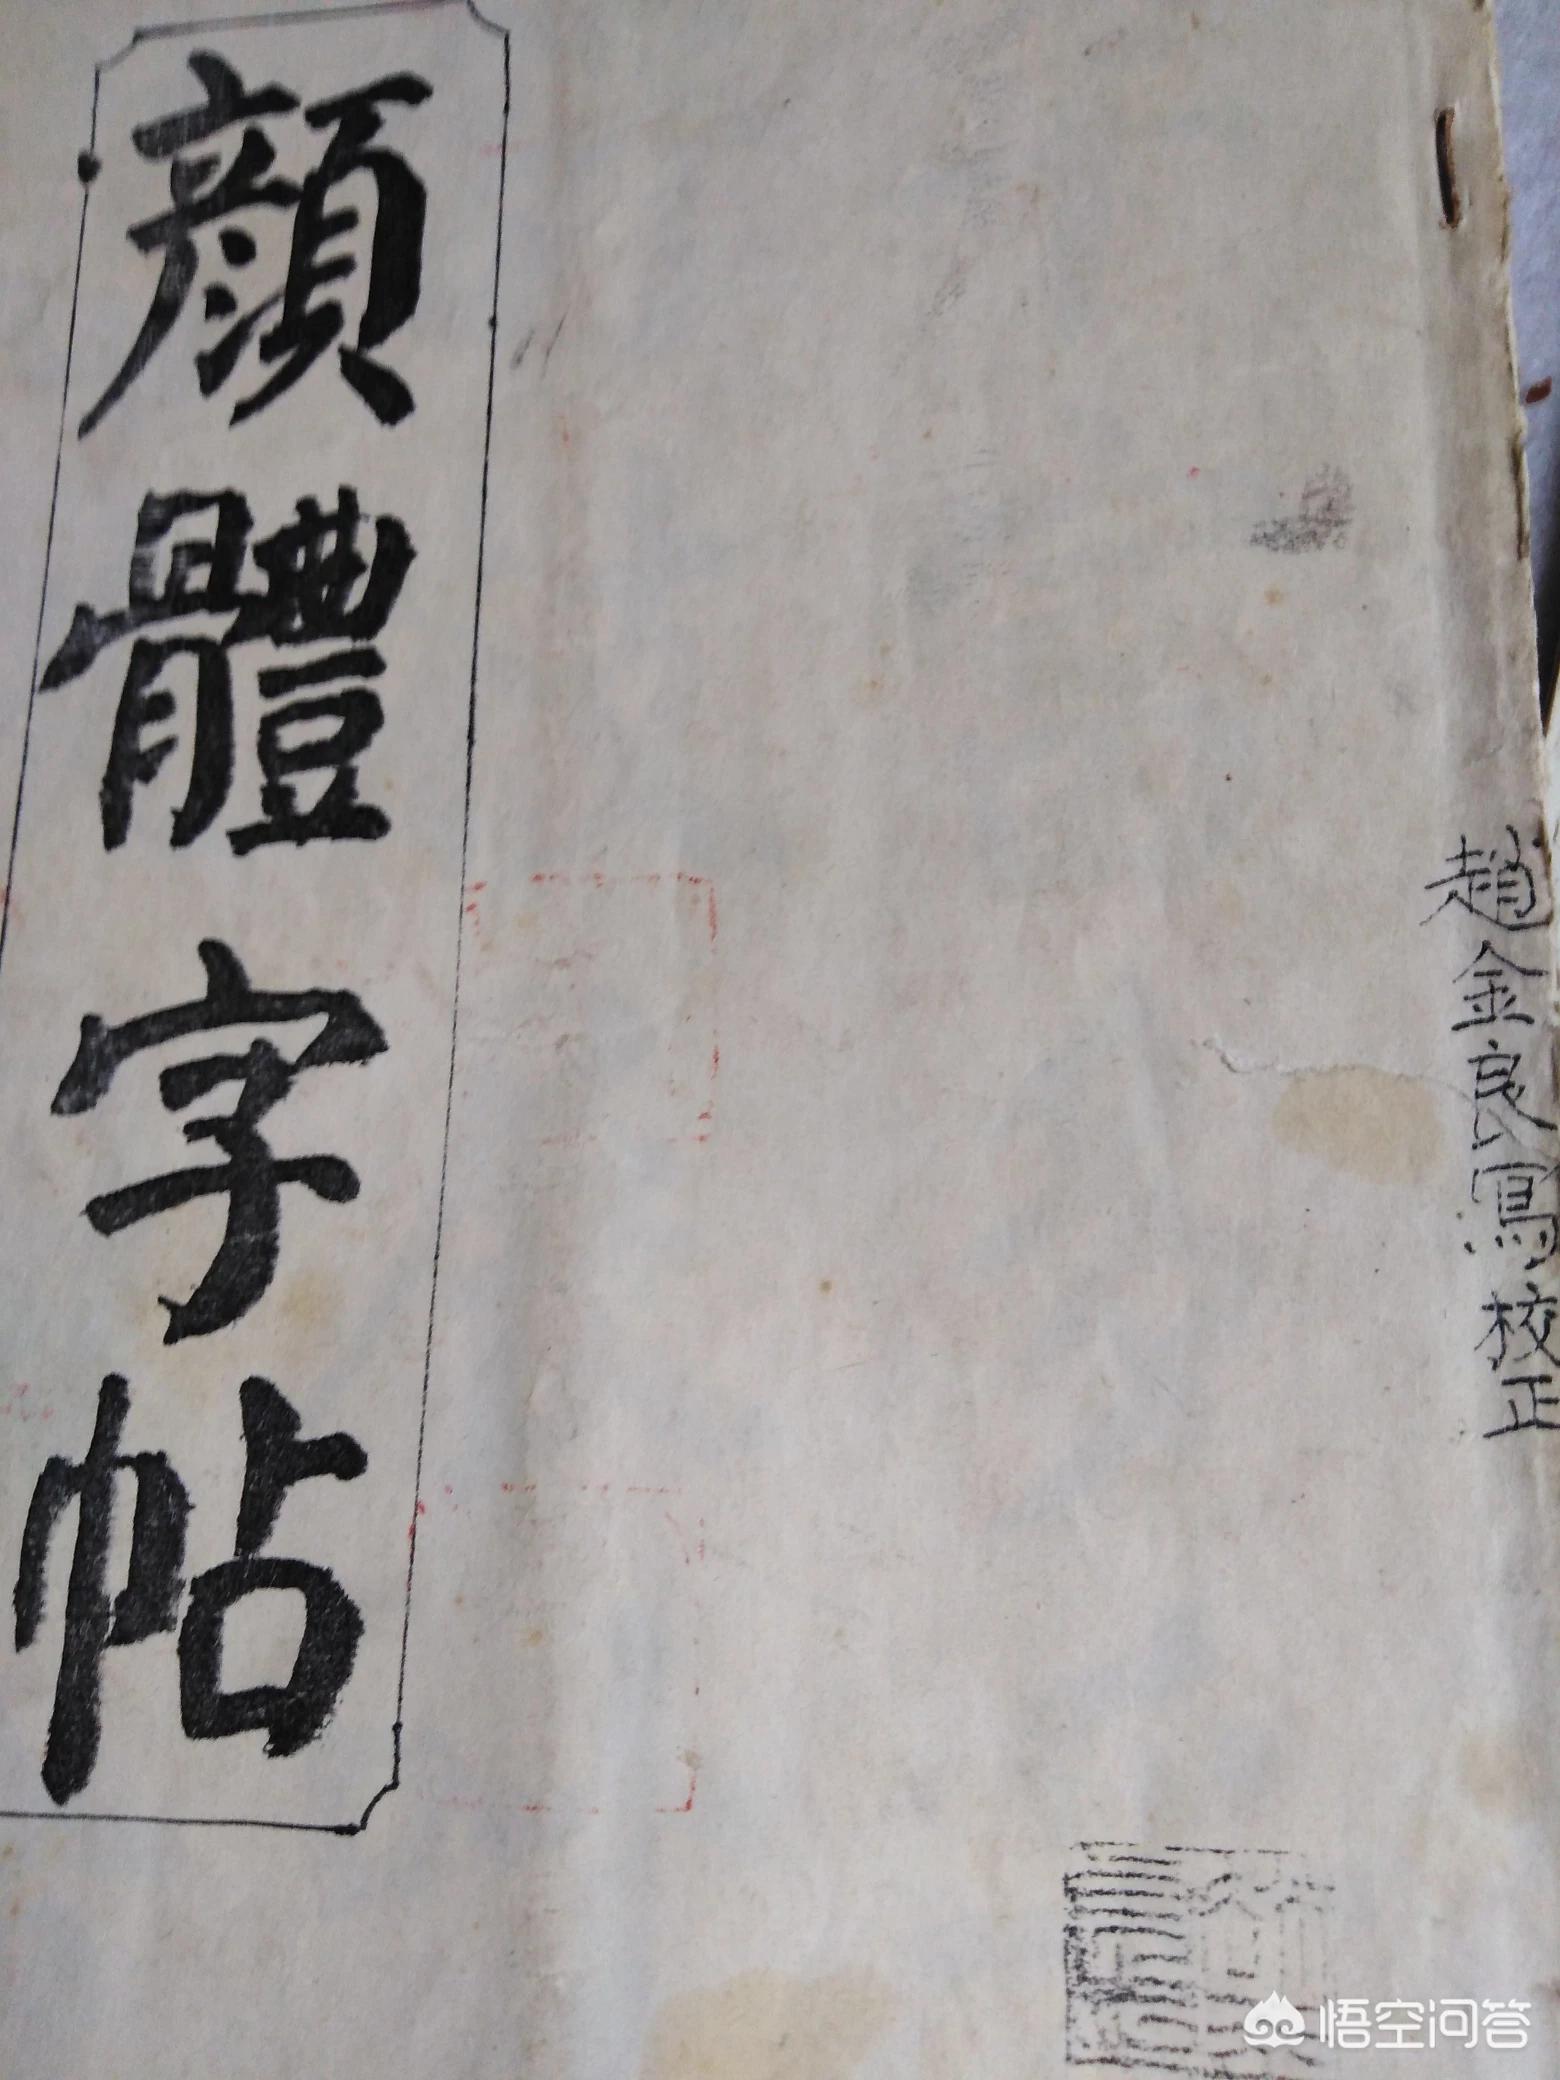 趙金良寫校正
顔體字帖
悟空问答